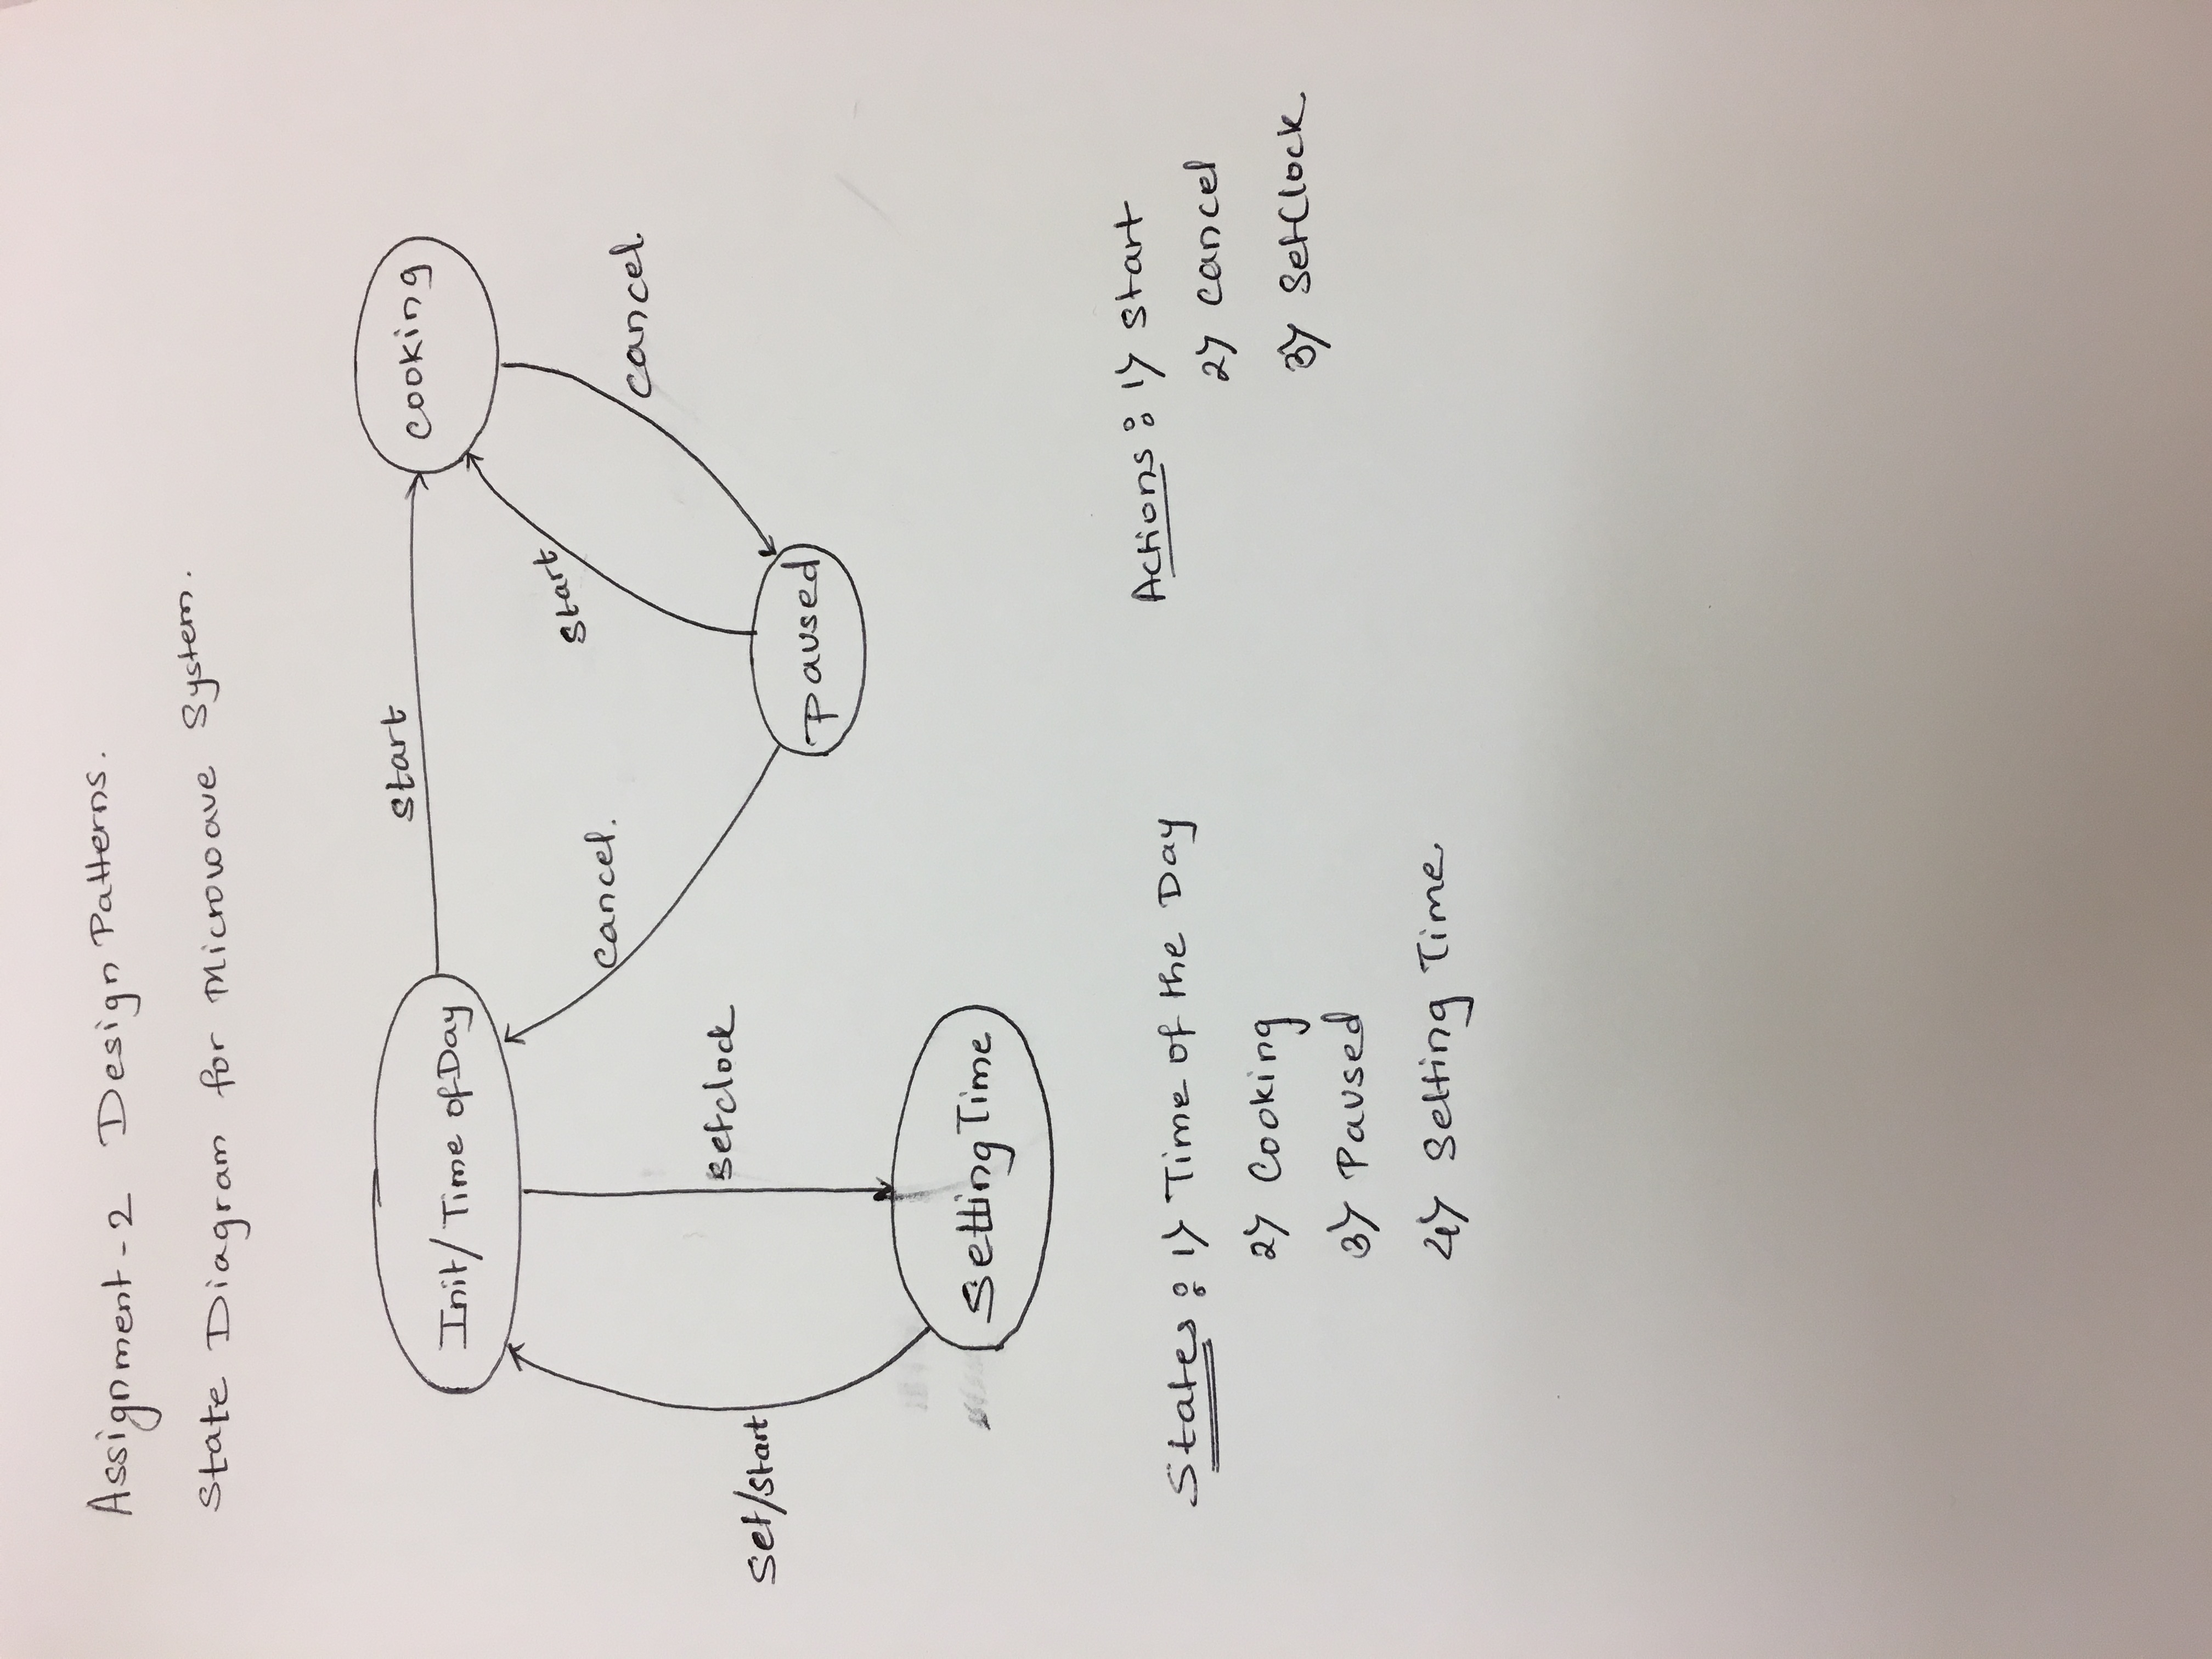 Assignment-2 Design Patterns.
State Diagram for Microwave System.
Init/Time of Day
Start
Cooking
Start
Cancel.
Cancel.
Setclock
Set/Start
Paused
Setting Time
States: 1) Time of the Day
2) Cooking
3) Paused
4) Setting Time
Actions: 1) Start
2) Cancel
3) SetClock